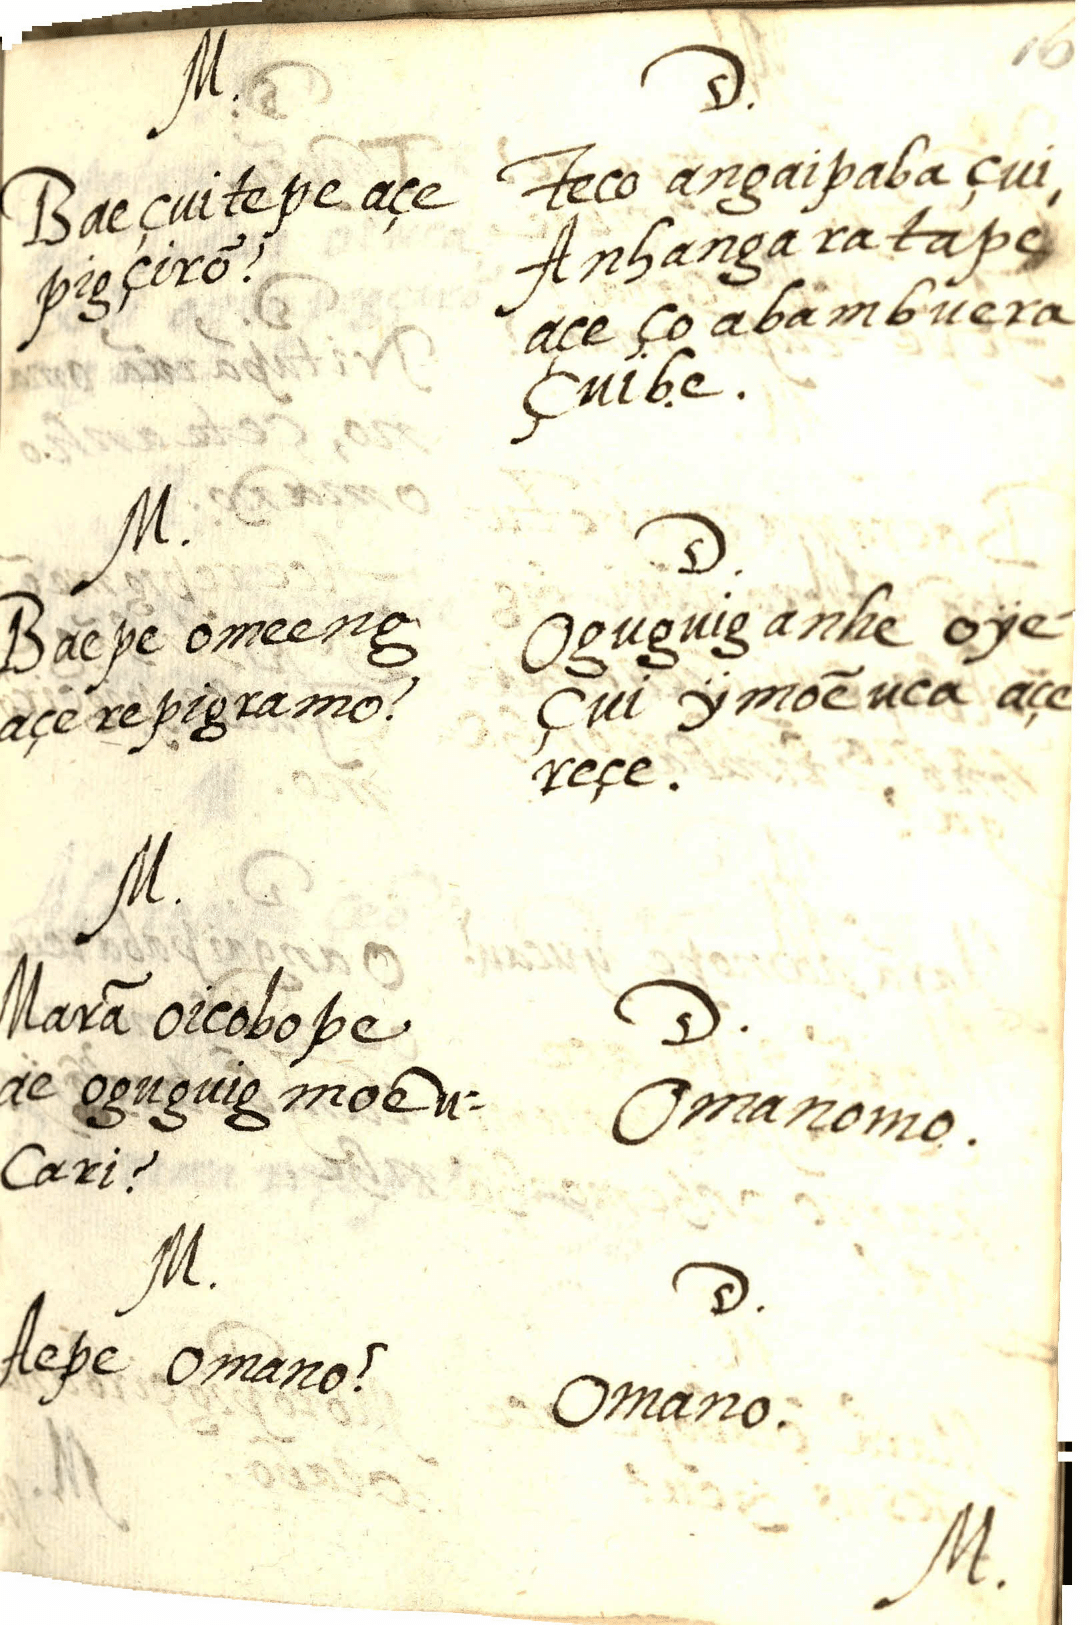 16
M.
Bae çui tepe açe
pigçirõ?
D.
Teco angaipaba çui,
Anhanga ratape
açe ço abambuera
çuibe.
M.
Baepe omeeng
açe repigramo?
D.
Oguguig anhe oÿe-
çui ÿmoẽuca açe
reçe.
M.
Marã oicobope
ae oguguig moẽu-
cari?
D.
Omanomo.
M.
Aepe omano?
D.
Omano.
M.